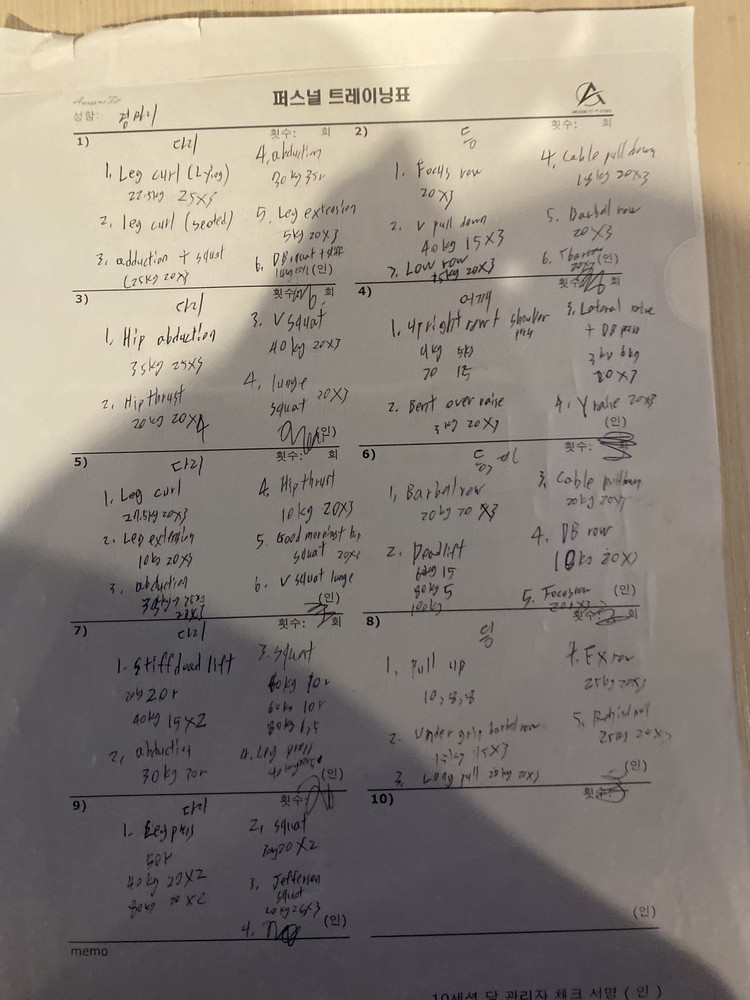 퍼스널 트레이닝표
성함:
1) 다리 횟수: 회
1. Leg curl (Lying)
22.5kg 25X3
2. leg curl (seated)
3. adduction + squat
(25kg 20X3)
4. abduction
30kg 35r
5. Leg extension
5kg 20X3
6. DB squat +
(인)
2) 등 횟수: 회
1. Focus row
20X3
2. V pull down
40kg 15X3
3. Low row
15kg 20X3
4. Cable pull down
20X3
5. Barbell row
20X3
6. Tbar row
(인)
3) 다리 횟수: 회
1. Hip abduction
35kg 25X3
2. Hip thrust
20kg 20X4
3. V squat
40kg 20X3
4. lunge
squat 20X3
(인)
4) 어깨 횟수: 회
1. Upright row + shoulder
4kg 5kg
20 15
2. Bent over raise
3kg 20X3
3. Lateral raise
+ DB press
3kg 6kg
20X3
4. Y raise 20X3
(인)
5) 다리 횟수: 회
1. Leg curl
27.5kg 20X3
2. Leg extension
10kg 20X3
3. abduction
4. Hip thrust
10kg 20X3
5. Good morning
squat 20X3
6. V squat lunge
(인)
6) 등 횟수: 회
1. Barbell row
20kg 20 X3
2. Deadlift
60kg 15
80kg 5
100kg
3. Cable pull down
20kg 20X3
4. DB row
10kg 20X3
5. Focus row
(인)
7) 다리 횟수: 회
1. Stiff dead lift
20kg 20r
40kg 15X2
2. abduction
30kg 30r
3. Squat
60kg 10r
80kg 6,5
4. Leg press
(인)
8) 등 횟수: 회
1. Pull up
10, 8, 8
2. Under grip barbell row
15X3
3. Long pull 20kg 20X3
4. EX row
25kg 20X3
5. Behind pull
25kg 20X3
(인)
9) 다리 횟수:
1. Leg press
50r
40kg 20X2
80kg 20X2
2. squat
20X2
3. Jefferson
squat
20kg 25X3
4.
(인)
10) 횟수:
(인)
memo
10세션 당 관리자 체크 서명 ( 인 )